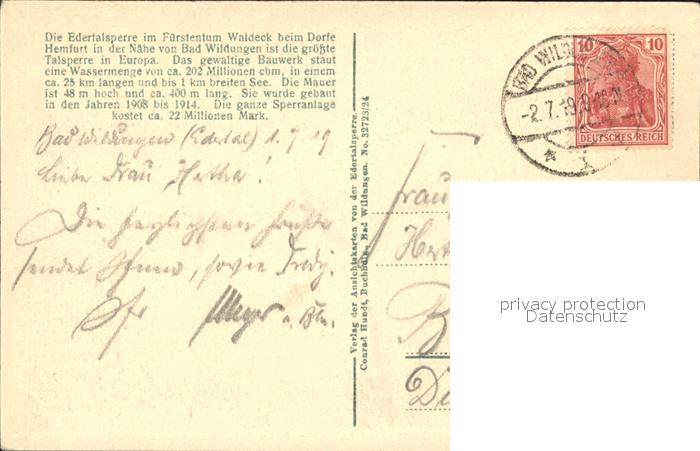 Die Edertalsperre im Fürstentum Waldeck beim Dorfe
Hemfurt in der Nähe von Bad Wildungen ist die größte
Talsperre in Europa. Das gewaltige Bauwerk staut
eine Wassermenge von ca. 202 Millionen cbm, in einem
ca. 25 km langen und bis 1 km breiten See. Die Mauer
ist 48 m hoch und ca. 400 m lang. Sie wurde gebaut
in den Jahren 1908 bis 1914. Die ganze Sperranlage
kostet ca. 22 Millionen Mark.
Bad Wildungen (Edertal) 1. 7 19
Liebe Frau Hertha!
Die herzlichsten Grüße
sendet Ihnen, sowie
Ihr Meyer
Verlag der Ansichtskarten von der Edertalsperre.
Conrad Hundt, Buchhdlg., Bad Wildungen. No. 32723/24
BAD WILD
-2.7.19
10 10
DEUTSCHES REICH
Frau
Hert
B
Di
privacy protection
Datenschutz